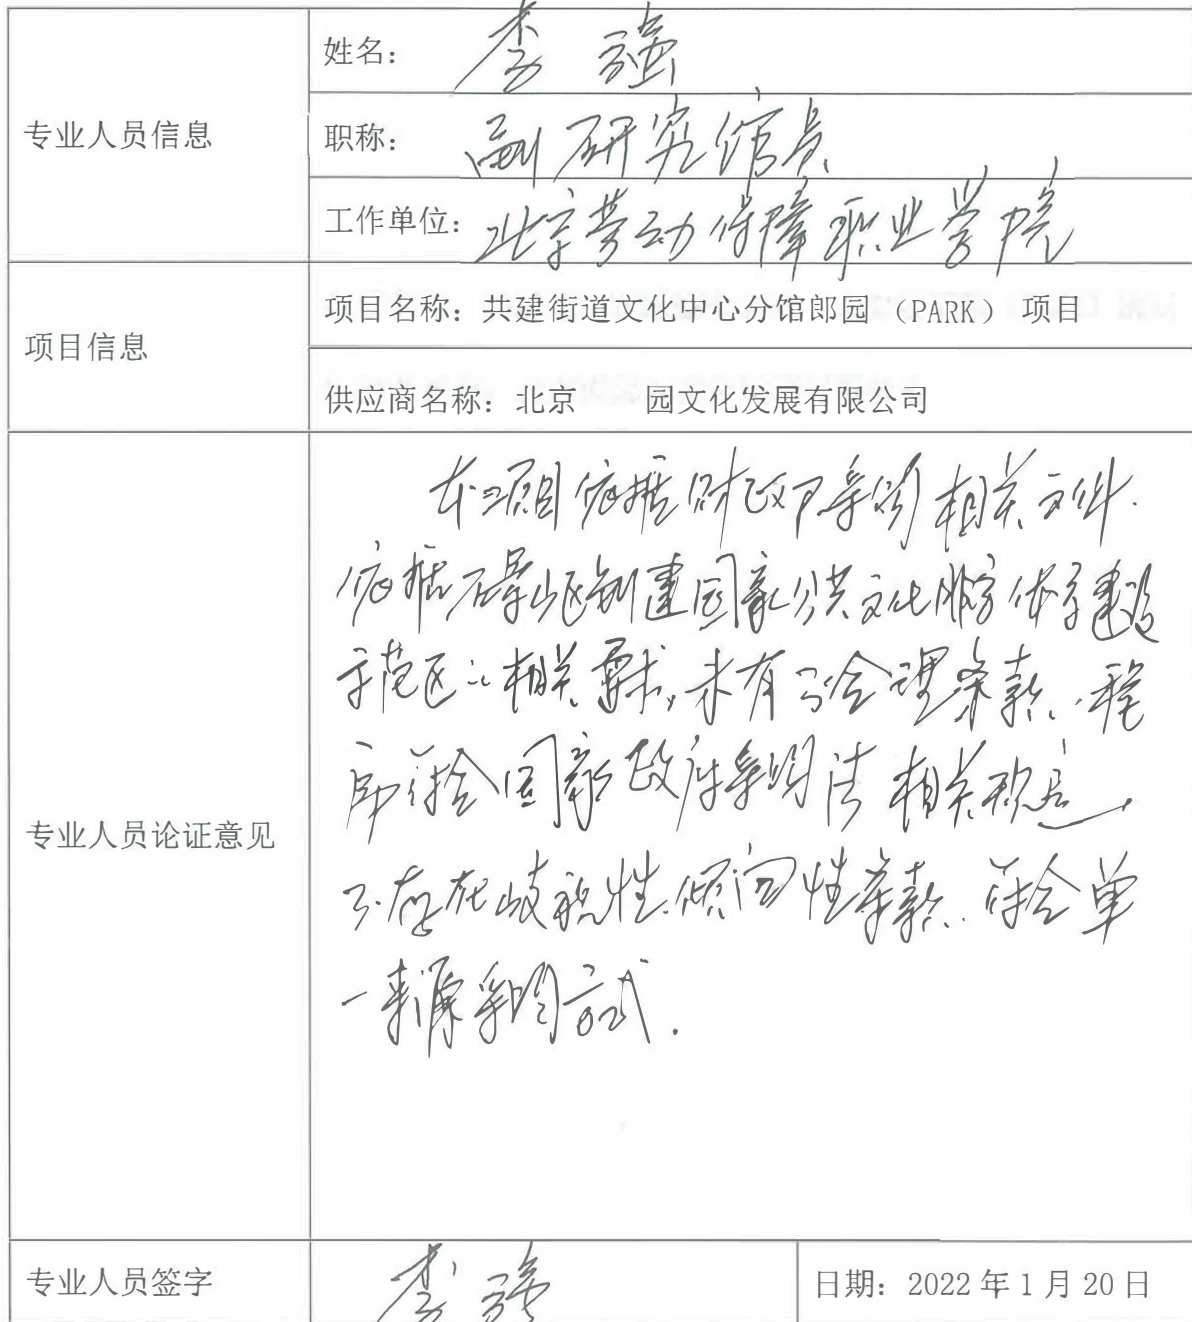 专业人员信息
姓名： 李强
职称： 副研究馆员
工作单位： 北京劳动保障职业学院
项目信息
项目名称：共建街道文化中心分馆郎园（PARK）项目
供应商名称：北京 园文化发展有限公司
专业人员论证意见
本项目依据财政部采购相关文件.
依据石景山区创建国家公共文化服务体系建设
示范区的相关要求,未有不合理条款.
符合国家政府采购法相关规定,
不存在歧视性.倾向性条款.符合单
一来源采购方式.
专业人员签字 李强 日期：2022年1月20日